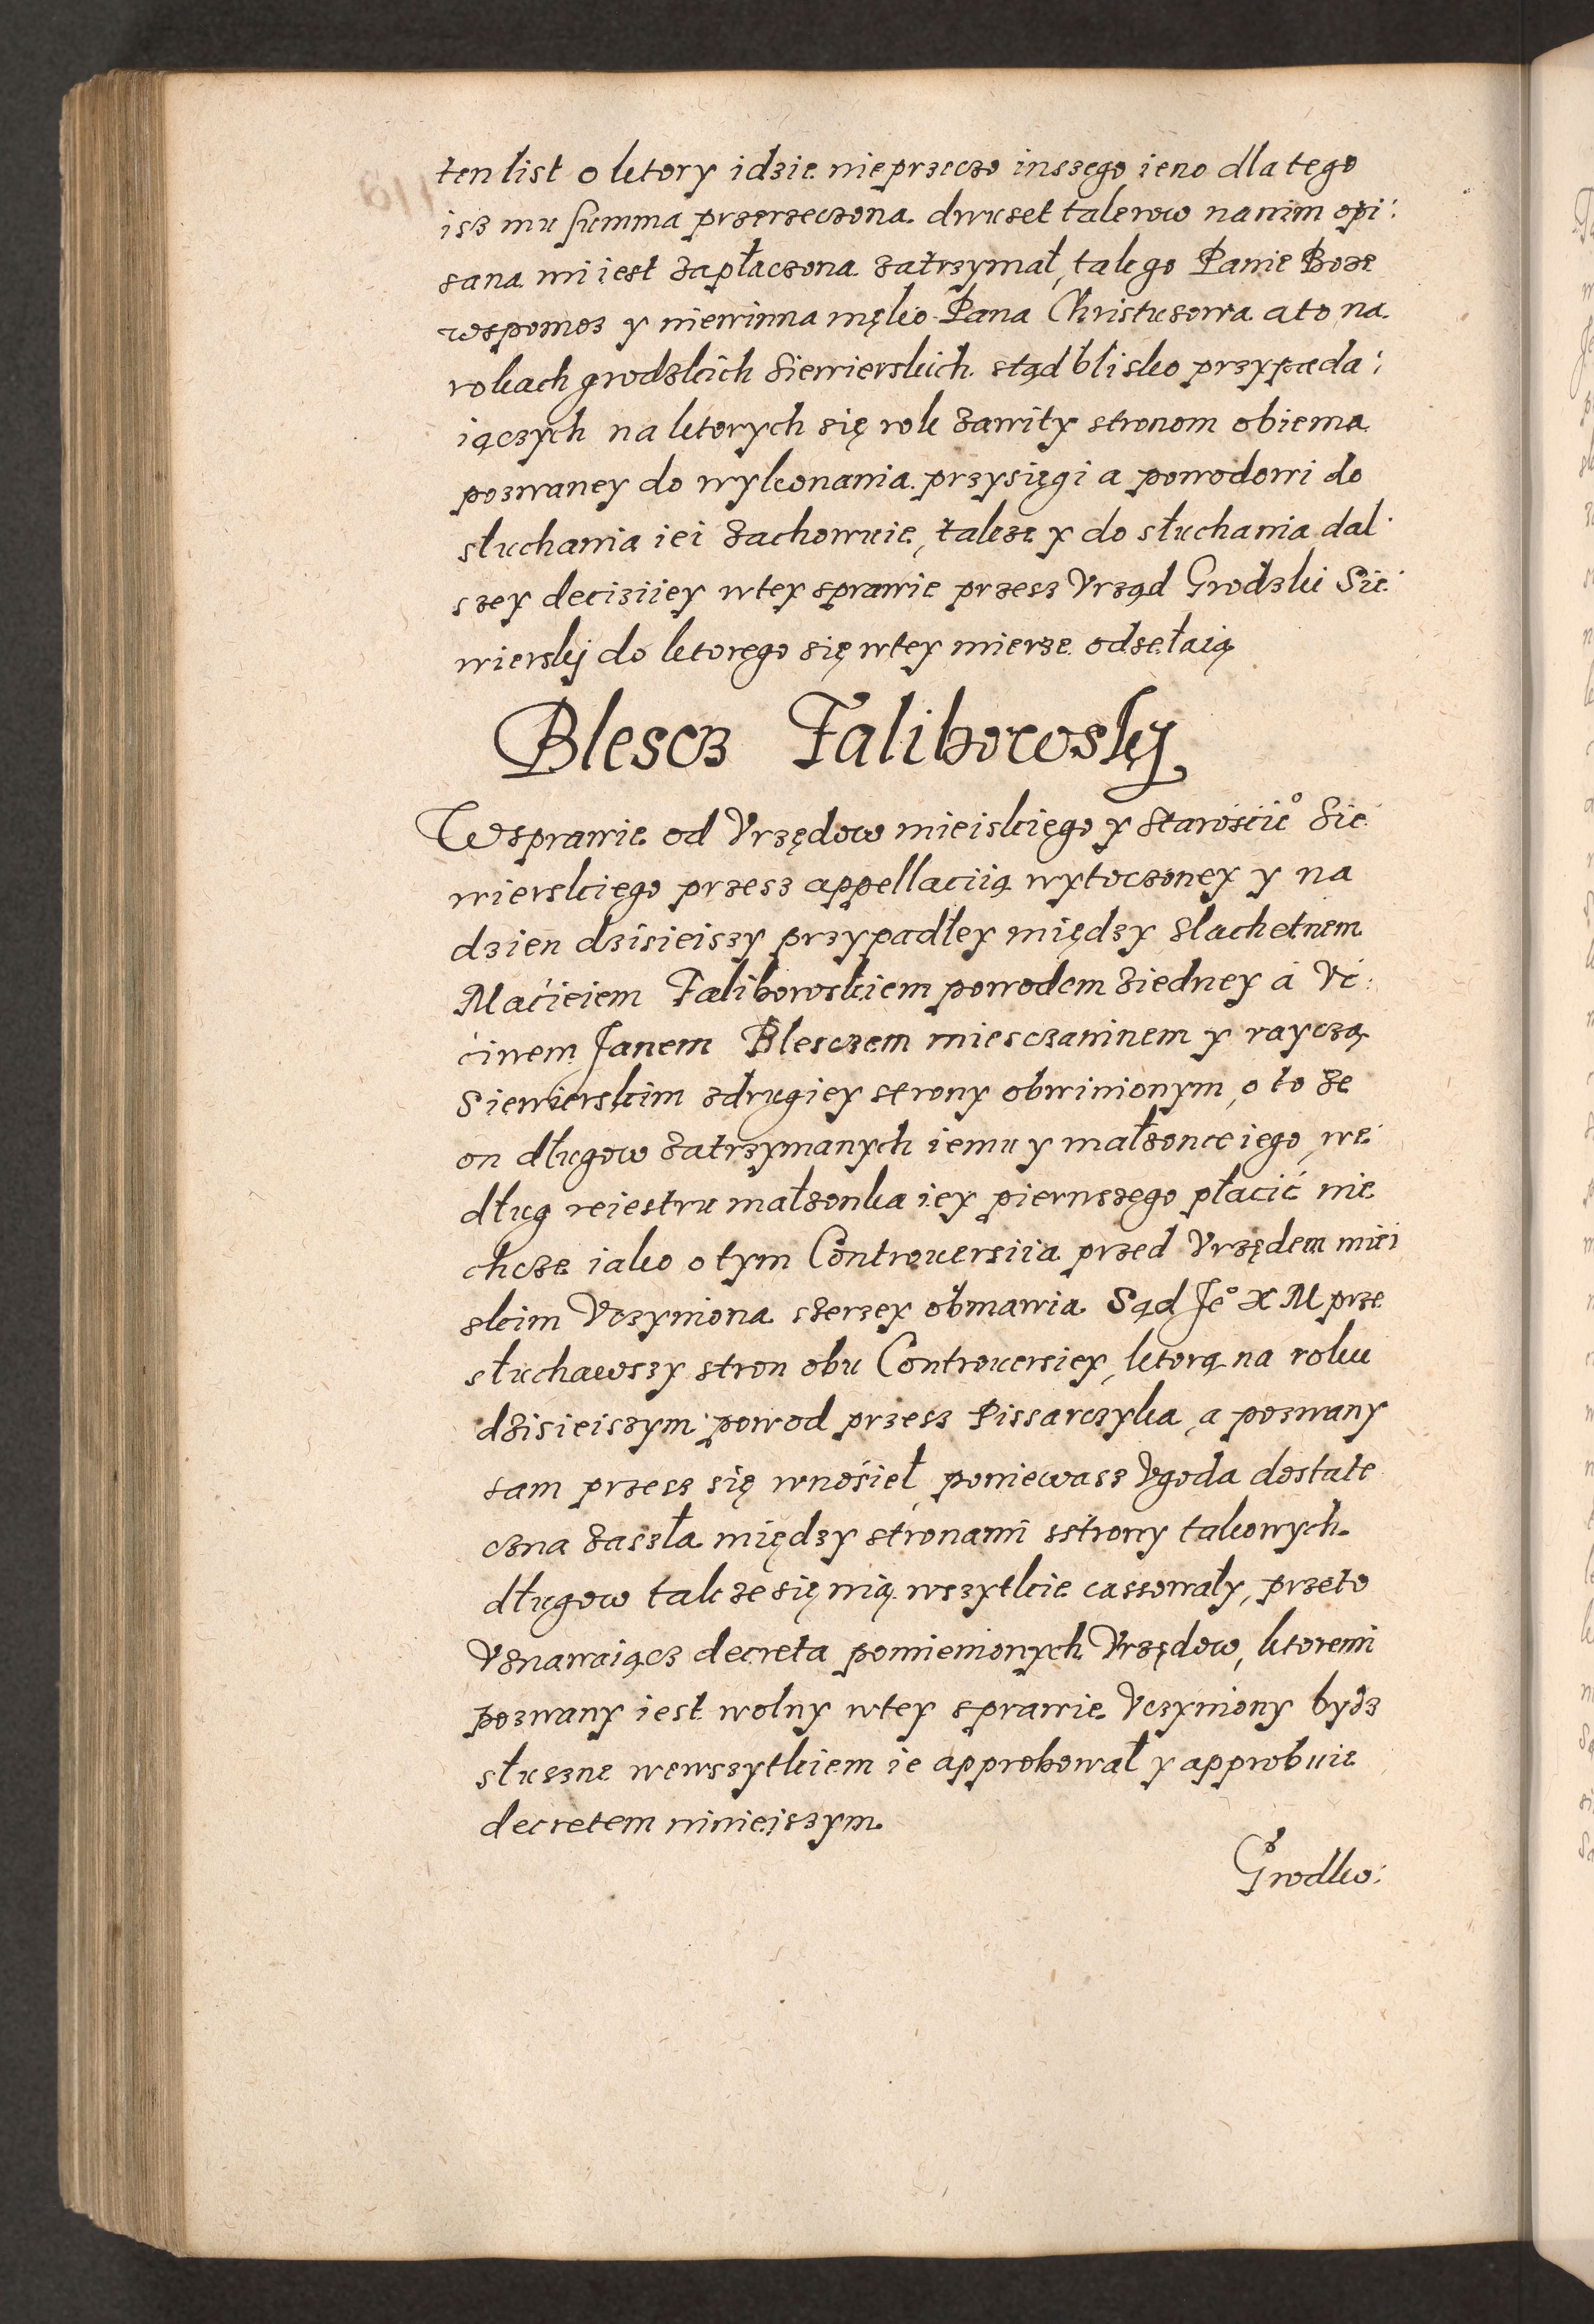 ten list o ktory idzie nieprzeczo inszego ieno dla tego
isz mu summa przerzeczona dwuset talerow na nim opi:
sana mi iest zapłaczona zatrzymał, tak go Panie Boze
wspomoz y niewinna męko Pana Christusowa a to na
rokach grodzkich Siewierskich stąd blisko przypada:
iączych na ktorych się rok zawity stronom obiema
pozwaney do wykonania przysięgi a powodowi do
słuchania iei zachowuie, takze y do słuchania dal
szey deciziiey wtey sprawie przesz Vrząd Grodzki Sie:
wierskj do ktorego się wtey mierze odsełaią
Blescz Falibowskÿ
Wsprawie od Vrzędow mieiskięgo y Starościᵒ Sie
wierskiego przesz appellaciią wytoczoney y na
dzien dzisieiszy przypadłey między Slachetnem
Maćieiem Falibowskiem powodem ziedney á Vć:
ćiwem Janem Blesczem miesczaninem y rayczą
Siewierskim zdrugiey strony obwinionym, o to ze
on długow zatrzymanych iemu y małzonce iego, we
dług reiestru małzonka iey pierwszęgo płacić nie
chcze iako o tym Controuersiia przed Vrzędem miei
skim Vczyniona szerzey obmawia Sąd Jeᵒ X M prze
słuchawszy stron obu Controuersiey, ktorą na roku
dzisieiszym powod przesz Pissarczyka, a pozwany
sam przesz się wnośieł, poniewasz Vgoda dostate
czna zaszła między stronami sstrony takowych
długow tak ze się nią wszytkie cassowały, przeto
Vznawaiącz decreta pomienionych Vrzędow, ktoremi
pozwany iest wolny wtey sprawie Vczyniony bydz
słuszne wewszytkiem ie approbował y approbuie
decretem ninieiszym
Grodko: